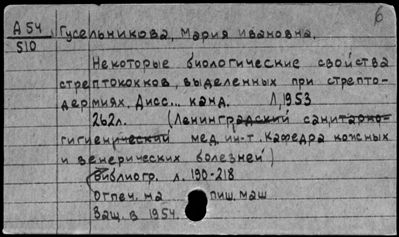 6
А 54 Гусельникова, Мария Ивановна.
510
Некоторые биологические свойства
стрептококков, выделенных при стрепто-
дермиях. Дисс... канд. Л, 1953
262л. (Ленинградский санитарно-
гигиенический мед. ин-т. Кафедра кожных
и венерических болезней)
Библиогр. л. 190-218
Отпеч. на пиш. маш
Защ. в 1954.